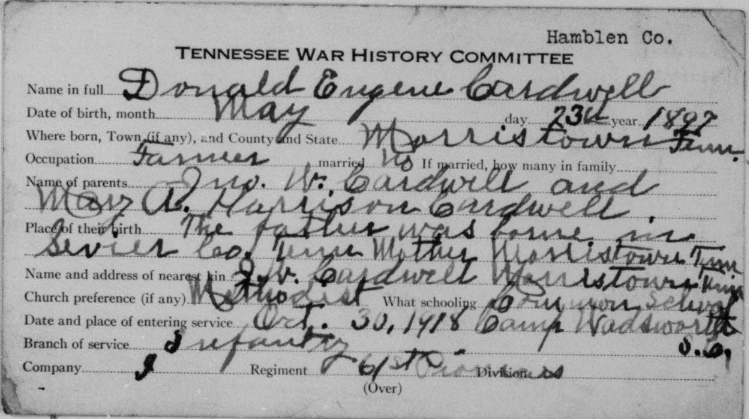 Hamblen Co.
TENNESSEE WAR HISTORY COMMITTEE
Name in full Donald Eugene Cardwell
Date of birth, month May day 23d year 1897
Where born, Town (if any), and County and State Morristown Tenn.
Occupation Farmer married No If married, how many in family
Name of parents Jno. W. Cardwell and
Mary A. Harrison Cardwell.
Place of their birth The father was borne in
Sevier Co. Tenn Mother Morristown Tenn.
Name and address of nearest kin J. W. Cardwell Morristown Tenn
Church preference (if any) Methodist What schooling Common School
Date and place of entering service Oct. 30, 1918 Camp Wadsworth
S.C.
Branch of service Infantry
Company I Regiment 61st Pioneers Division
(Over)